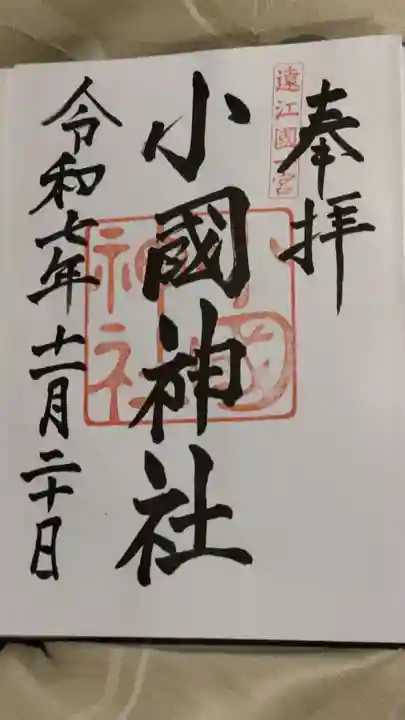 奉拝
遠江國一宮
小國神社
小國神社
令和七年十一月二十日